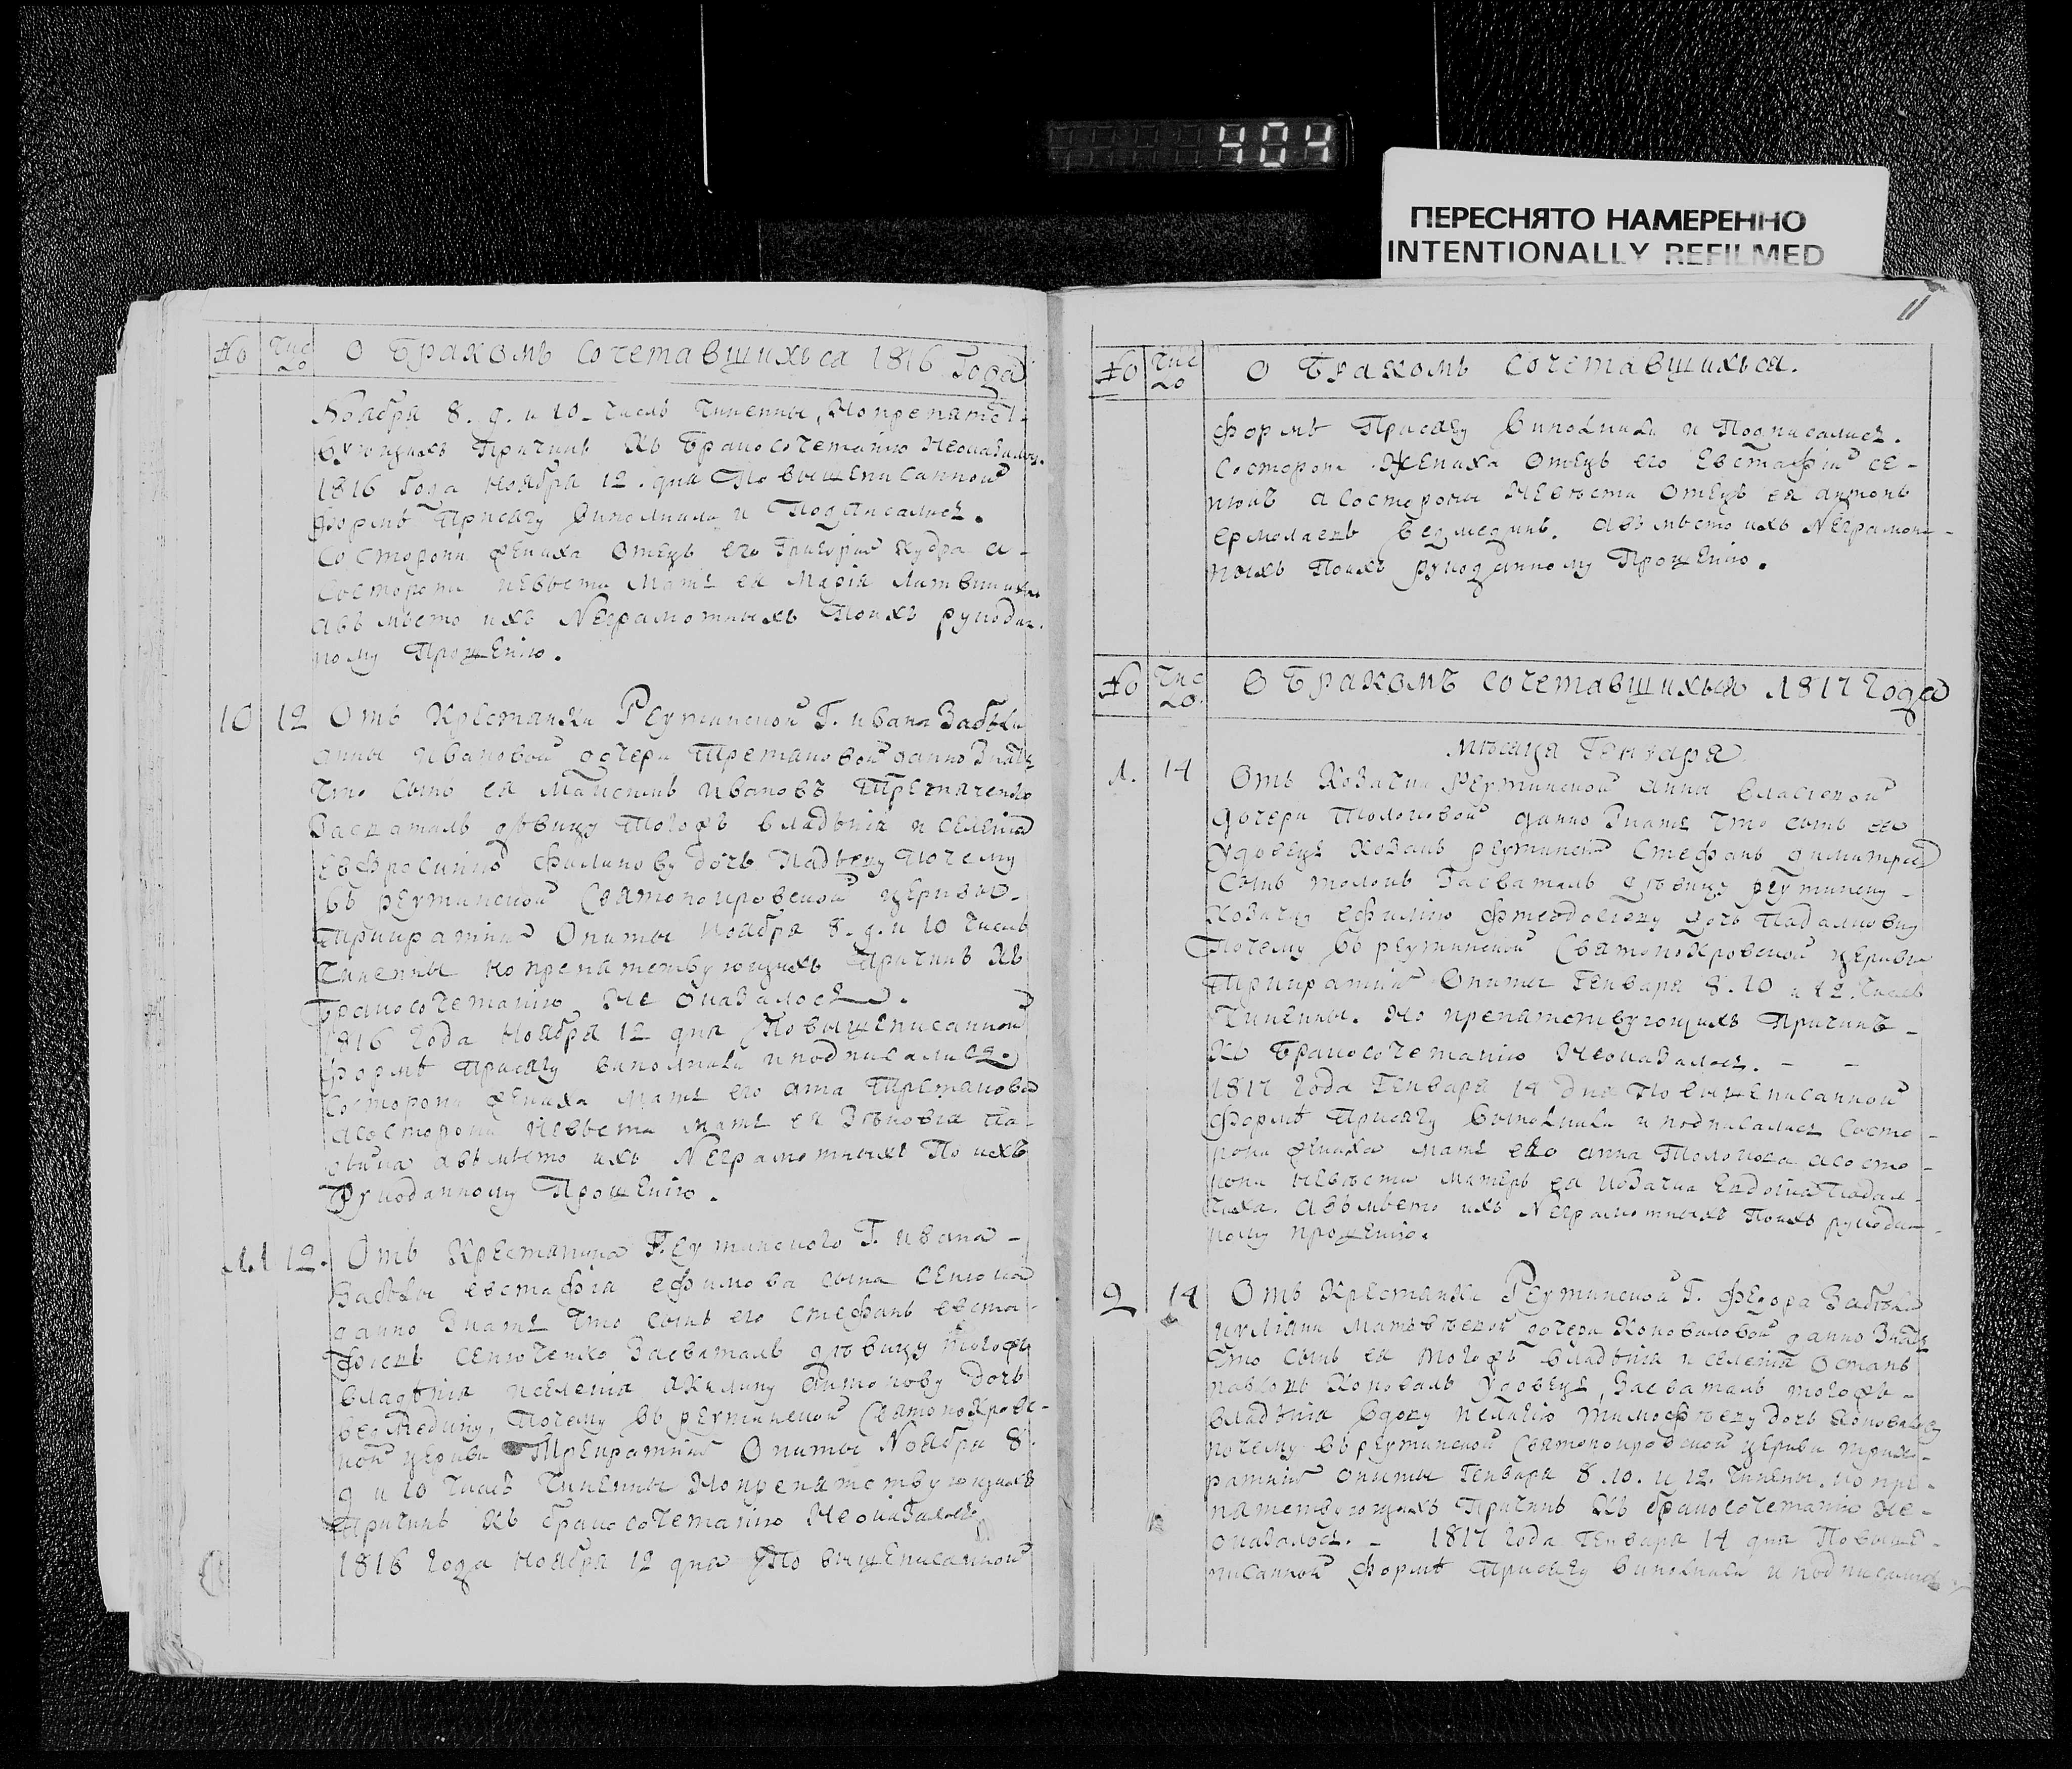 404
ПЕРЕСНЯТО НАМЕРЕННО
INTENTIONALLY REFILMED
№ Число О бракомъ сочетавшихъся 1816 Года
Ноября 8. 9. и 10 числъ чиненны, но препятст-
вующихъ причинъ къ бракосочетанію неоказалось.
1816 Года ноября 12. дня По вышеписанной
формѣ присягу виполнили и Подписались.
Состороны жениха отецъ его Григорій Кудра а-
состороны невѣсты Мать ея Марія
авъмѣсто ихъ Неграмотныхъ Поихъ рукодан-
ному Прошенію.
10 12 Отъ Крестянки Реутинской Г. ивана Забѣлы
анны ивановой дочери данно знать
Что сынъ ея Максимъ ивановъ
Засваталъ дѣвицу Тогожъ владѣнія и селенія
Евфросинію Филипову дочь Почему
въ реутинской Святопокровской церкви-
Трикратніе Опиты ноября 8. 9. и 10 числъ
чиненны но препятствующихъ Причинъ Къ
бракосочетанію Не оказалось.
1816 Года Ноября 12 дня По вышеписанной
формѣ присягу виполнили иподписались
Состороны жениха Мать его анна
асостороны Невѣсты мать ея Зѣновія Па-
авъмѣсто ихъ Неграмотныхъ По ихъ
рукоданному Прошенію.
11 12. Отъ Крестянина Реутинского Г. ивана-
Забѣлы евстафія ефимова сына Сенюка
данно Знать Что сынъ его стефанъ евста-
фіевъ Сенюченко Засваталъ дѣвицу Тогожъ
владѣнія иселенія акилину антонову дочь
ведмедину, Почему въ реутинской Святопокровс-
кой церкви Трекратніе Опиты Ноября 8.
9 и 10 числъ чиненны Но препятствующихъ
Причинъ Къ бракосочетанію Неоказалось
1816 Года Ноября 12 дня По вышеписанной
11
№ Число О Бракомъ сочетавшихъся.
формѣ Присягу виполнили и Подписались.
Состороны Жениха отецъ его Евстафій се-
нюкъ а состороны Невѣсты отецъ ея антонъ
ермолаевъ Ведмединъ. авъмѣсто ихъ Неграмот-
ныхъ Поихъ рукоданному Прошенію.
№ Число О Бракомъ сочетавшихъся 1817 Года
мѣсяца Генваря
1. 14 Отъ Козачки Реутинской анны власовой
дочери Толоковой данно Знать Что сынъ ея
удовецъ Козакъ реутинскій Стефанъ димитріев
сынъ толокъ Засваталъ дѣвицу реутинску-
Козачку ефимію дочь
Почему въ реутинской Святопокровской церкви
Трикратніе Опиты Генваря 8. 10 и 12. числъ
Чиненны. Но препятствующихъ Причинъ-
Къ Бракосочетанію Неоказалось. - -
1817 Года Генваря 14 Дня По вышеписанной
формѣ Присягу выполнили и подписались Состо-
роны жениха мать его анна Толокова асосто-
роны невѣсты матерь ея козачка Евдокіа
авъмѣсто ихъ Неграмотныхъ Поихъ рукодан-
ному прошенію.
2 14 Отъ Крестянки Реутинской Г. Федора Забѣлы
иулиани Матвѣевой дочери Коноваловой данно Знать
Что сынъ ея Тогожъ владѣнія и селенія Остапъ
павловъ Коновалъ удовецъ, Засваталъ тогожъ-
владѣнія вдову пелагію тимофѣеву дочь
почему въ реутинской Святопокровской церкви трик-
ратніе опиты Генваря 8. 10. и 12. чинены. но пре-
пятствующихъ Причинъ Къ бракосочетанію Не-
оказалось. - 1817 Года Генваря 14 дня По выше-
писанной формѣ Присягу виполнили и подписались